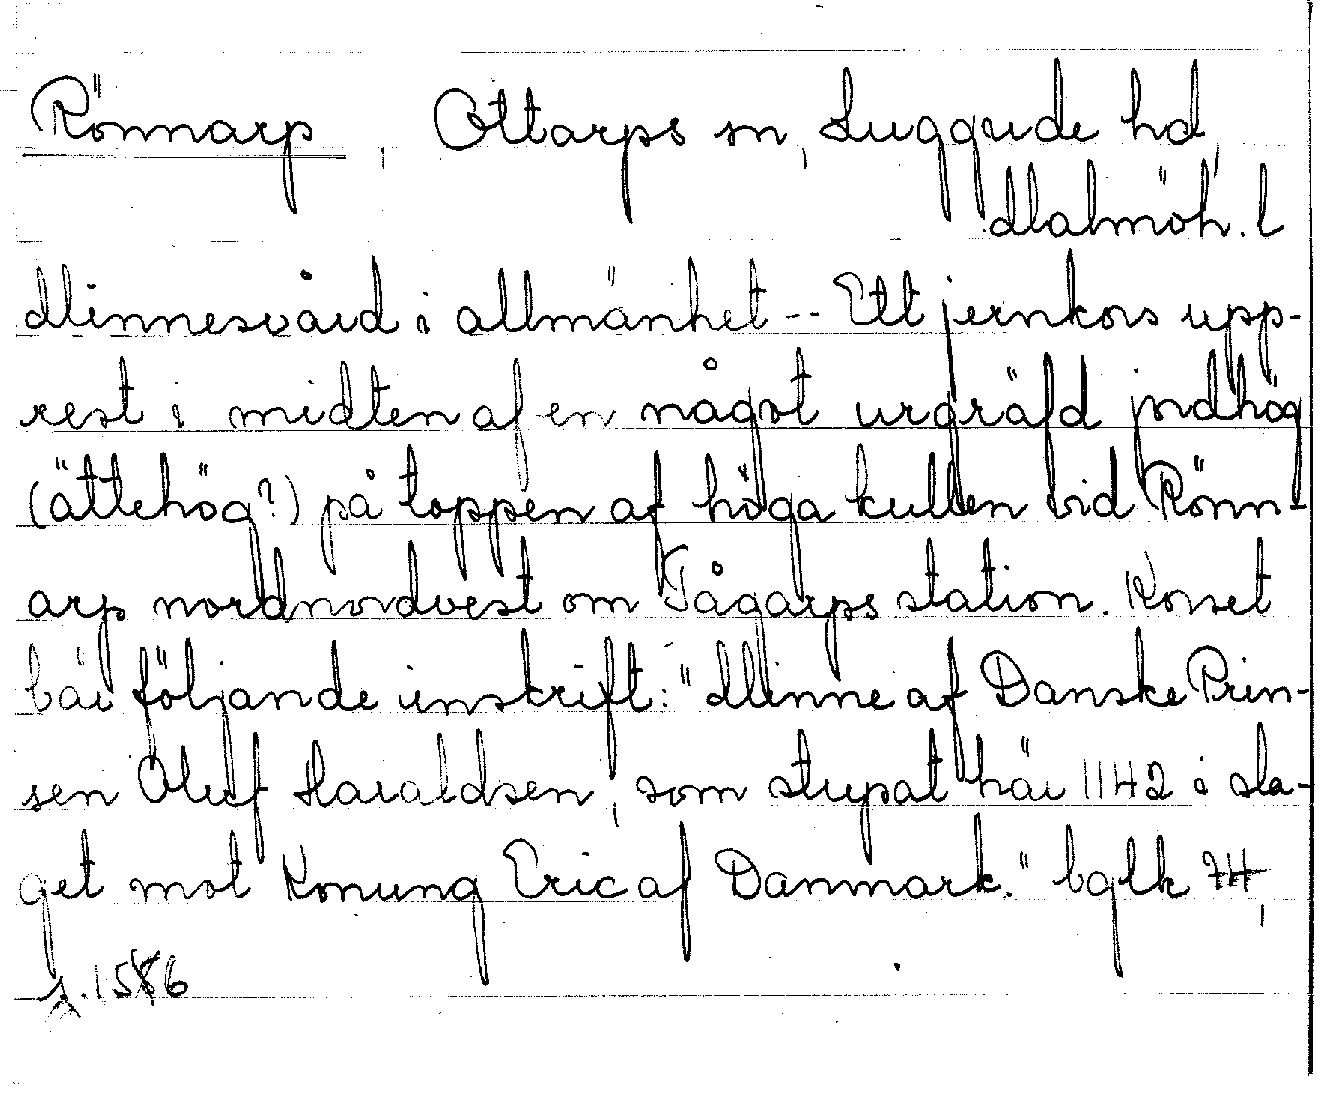 Rönnarp, Ottarps sn, Luggude hd,
Malmöh. l
Minnesvård i allmänhet -- Ett jernkors upp-
rest i midten af en något urgräfd jordhög
(ättehög?) på toppen af höga kullen vid Rönn-
arp nordnordvest om Tågarps station. Korset
bär följande inskrift: "Minne af Danske Prin-
sen Oluf Haraldsen, som stupat här 1142 i sla-
get mot Konung Eric af Danmark." bglk 74,